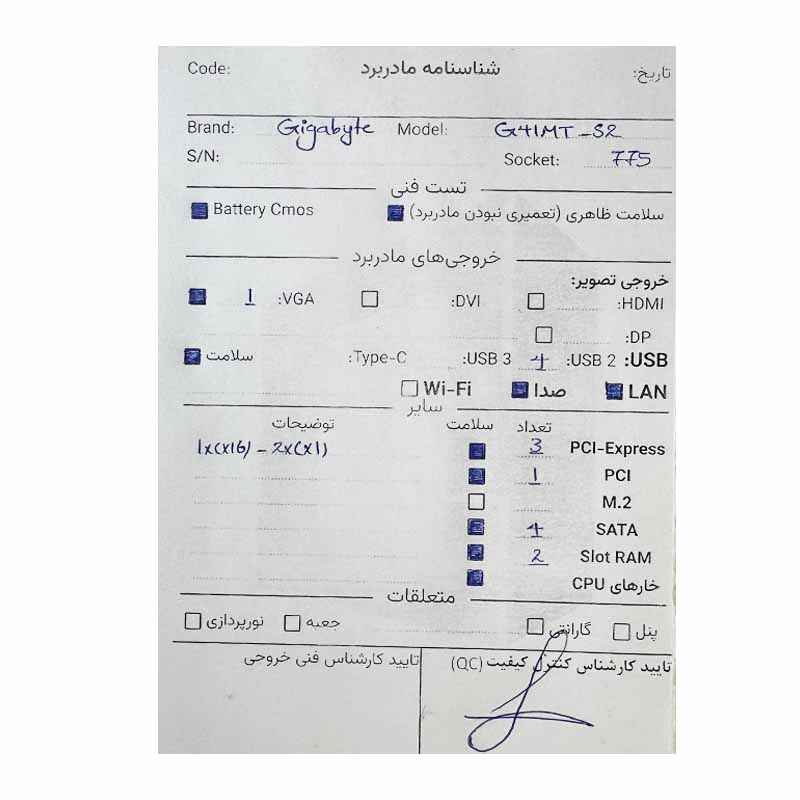 Code: شناسنامه مادربرد تاریخ:
Brand: Gigabyte Model: G41MT-S2
S/N: Socket: 775
تست فنی
سلامت ظاهری (تعمیری نبودن مادربرد) Battery Cmos
خروجی‌های مادربرد
خروجی تصویر:
HDMI: DVI: VGA: 1
DP:
USB: USB 2: 4 USB 3: Type-C: سلامت
LAN صدا Wi-Fi
سایر
تعداد سلامت توضیحات
PCI-Express 3 1x(x16) - 2x(x1)
PCI 1
M.2
SATA 4
Slot RAM 2
خارهای CPU
متعلقات
پنل گارانتی جعبه نورپردازی
تایید کارشناس کنترل کیفیت (QC) تایید کارشناس فنی خروجی